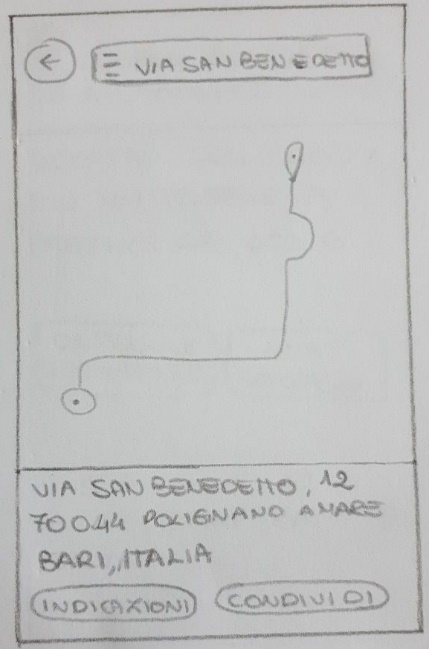 VIA SAN BENEDETTO
VIA SAN BENEDETTO, 12
70044 POLIGNANO A MARE
BARI, ITALIA
INDICAZIONI
CONDIVIDI